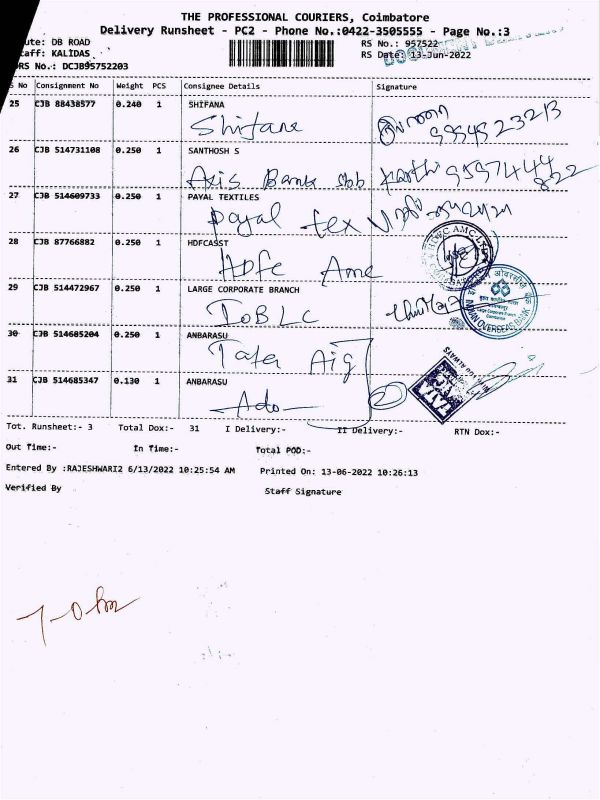 THE PROFESSIONAL COURIERS, Coimbatore
Delivery Runsheet - PC2 - Phone No.:0422-3505555 - Page No.:3
ute: DB ROAD
RS No.: 957522
aff: KALIDAS
RS Date: 13-Jun-2022
DRS No.: DCJB95752203
S No Consignment No Weight PCS Consignee Details Signature
25 CJB 88438577 0.240 1 SHIFANA
Shifana
26 CJB 514731108 0.250 1 SANTHOSH S
Axis Bank
27 CJB 514609733 0.250 1 PAYAL TEXTILES
Payal tex
28 CJB 87766882 0.250 1 HDFCASST
Hdfc Amc
29 CJB 514472967 0.250 1 LARGE CORPORATE BRANCH
IoBLC
INDIAN OVERSEAS BANK
30 CJB 514685204 0.250 1 ANBARASU
Tata Aig
31 CJB 514685347 0.130 1 ANBARASU
Ado
Tot. Runsheet:- 3 Total Dox:- 31 I Delivery:- II Delivery:- RTN Dox:-
Out Time:- In Time:- Total POD:-
Entered By :RAJESHWARI2 6/13/2022 10:25:54 AM Printed On: 13-06-2022 10:26:13
Verified By Staff Signature